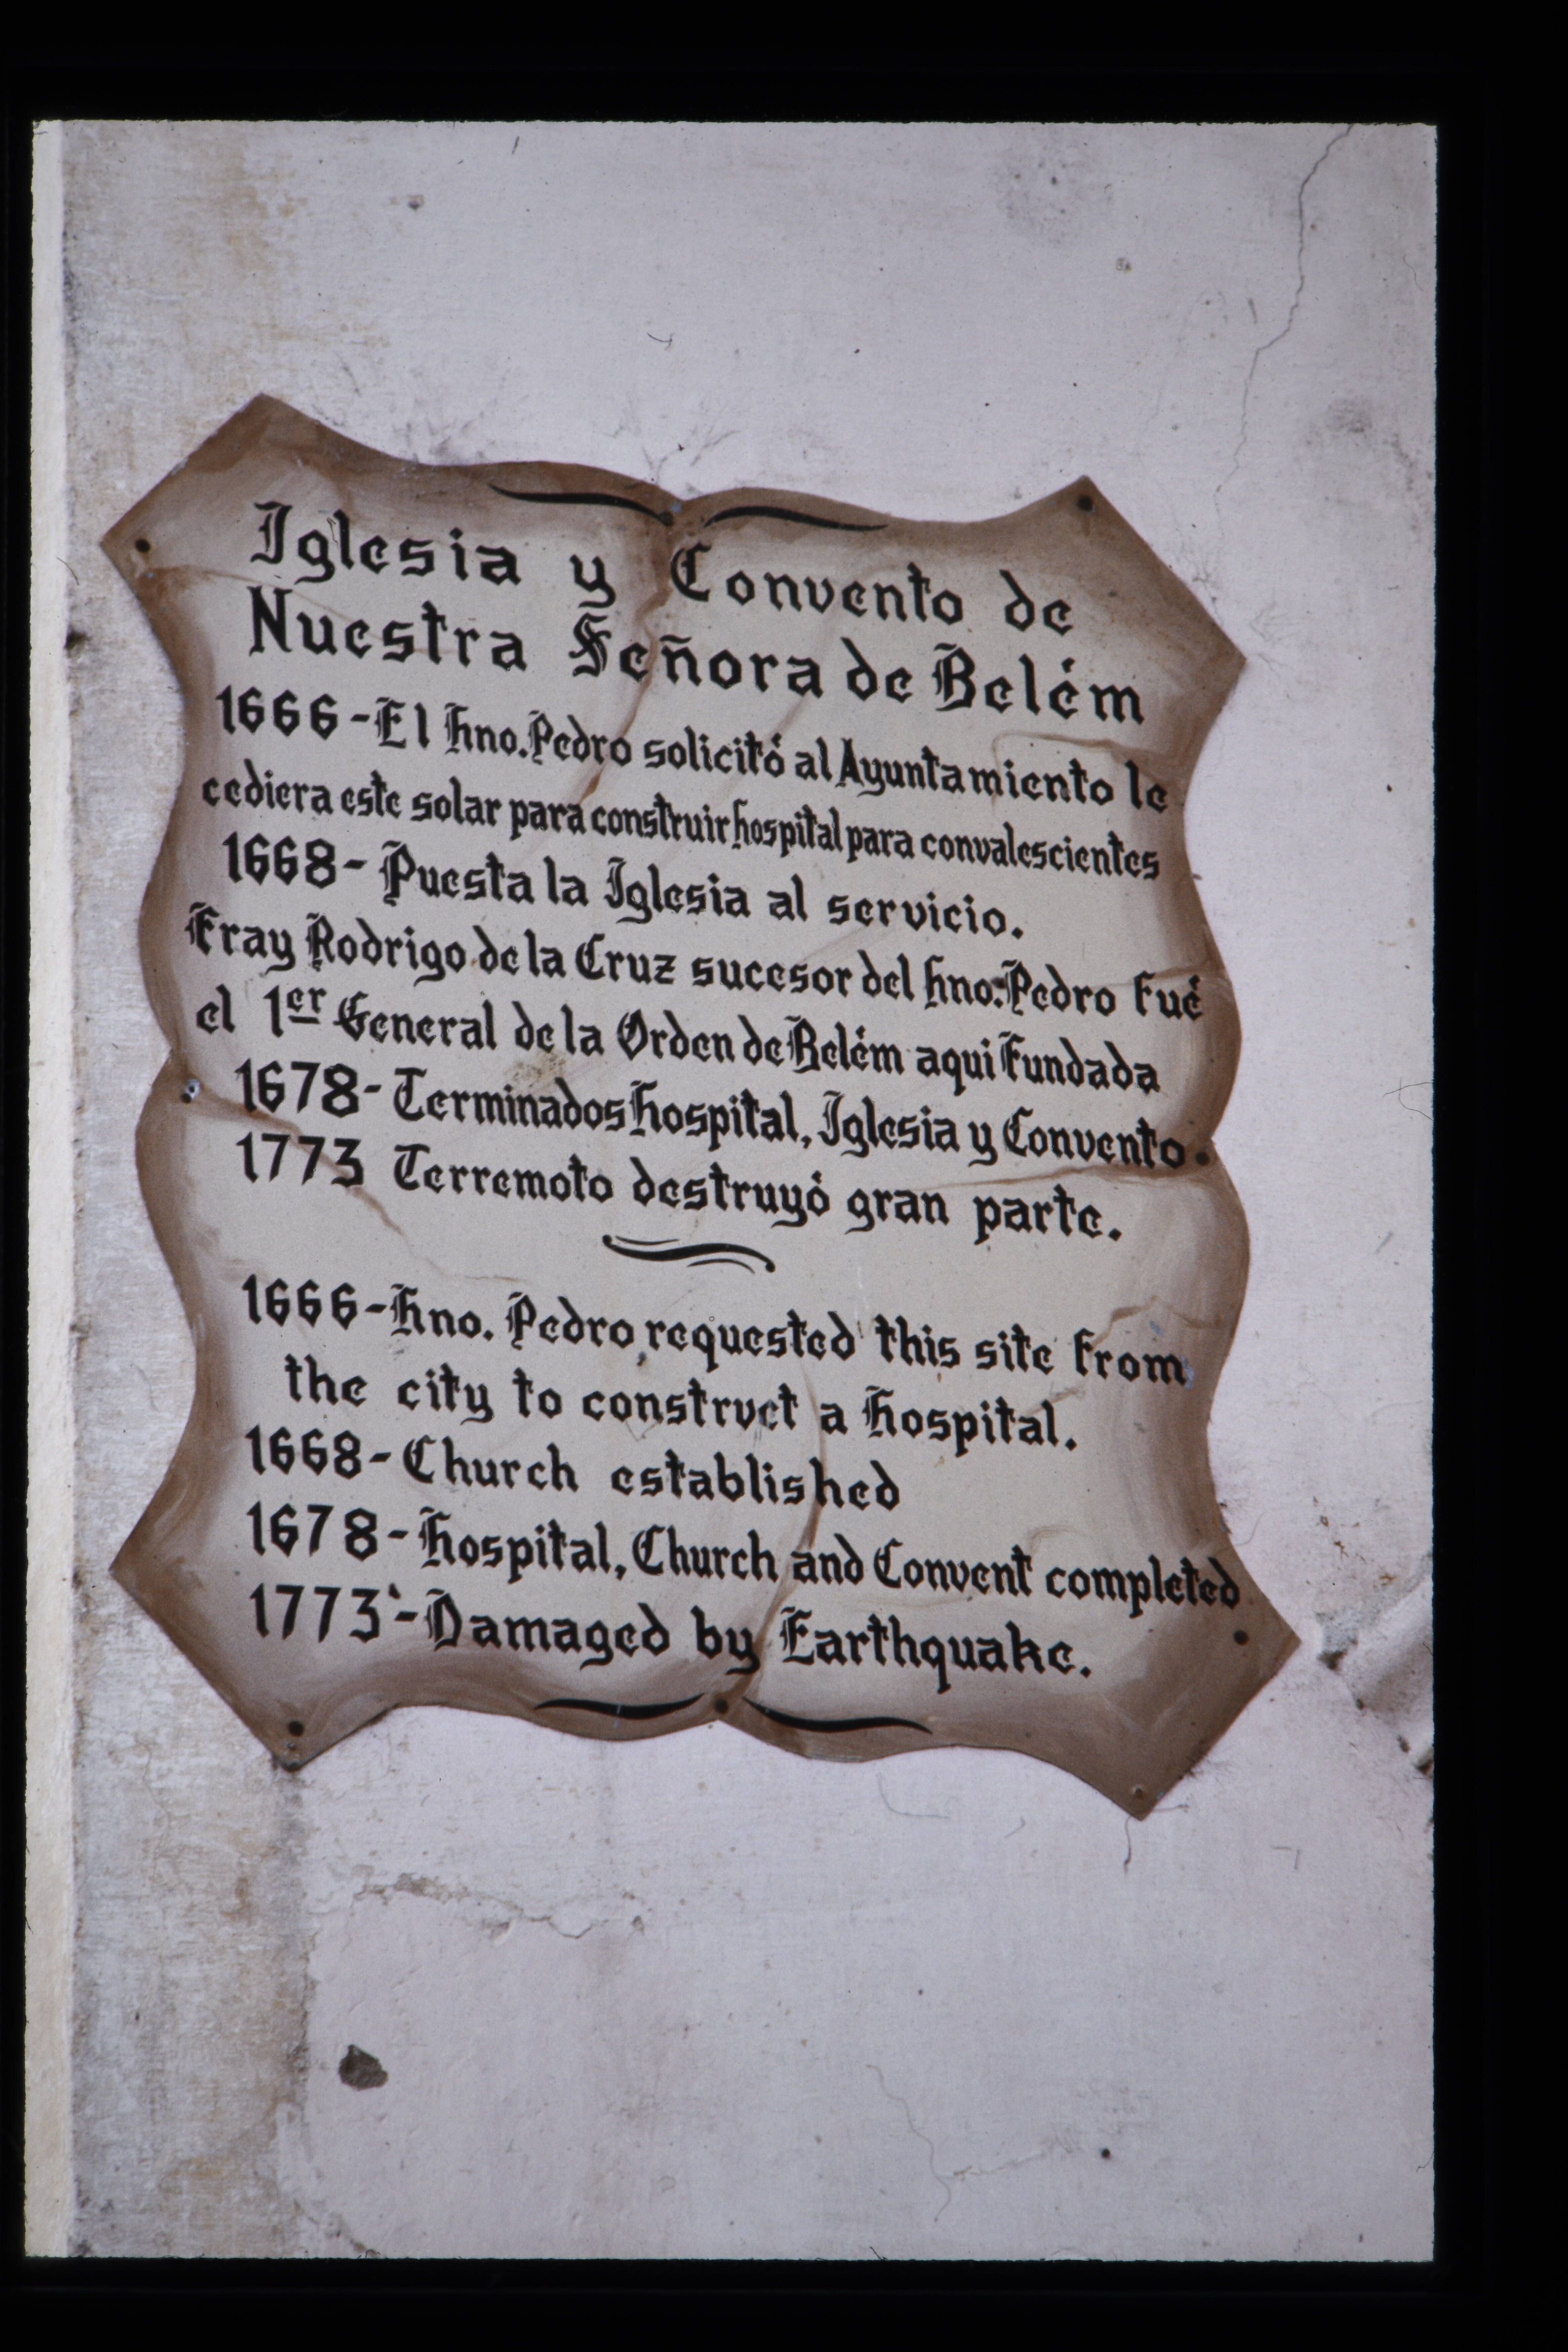 Iglesia y Convento de
Nuestra Señora de Belém
1666-El Hno. Pedro solicitó al Ayuntamiento le
cediera este solar para construir hospital para convalescientes
1668- Puesta la Iglesia al servicio.
Fray Rodrigo de la Cruz sucesor del Hno. Pedro Fué
el 1er General de la Orden de Belém aqui Fundada
1678- Terminados Hospital, Iglesia y Convento.
1773 Terremoto destruyó gran parte.
1666-Hno. Pedro requested this site from
the city to construct a Hospital.
1668-Church established
1678-Hospital, Church and Convent completed
1773-Damaged by Earthquake.